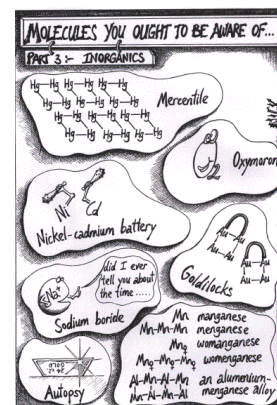 MOLECULES YOU OUGHT TO BE AWARE OF...
PART 3:- INORGANICS
Hg—Hg—Hg—Hg
Hg—Hg—Hg—Hg
Hg—Hg—Hg—Hg
Hg—Hg—Hg—Hg
Mercentile
Oxymoron
Ni Cd
Nickel-cadmium battery
Au Au
Au—Au Au
Au—Au
Goldilocks
did I ever
tell you about
the time .....
Na+
Sodium boride
Autopsy
Mn manganese
Mn-Mn-Mn menganese
Mn♀ womanganese
Mn♀-Mn♀-Mn♀ womenganese
Al-Mn-Al-Mn an alumenium-
Mn-Al-Mn-Al menganese alloy